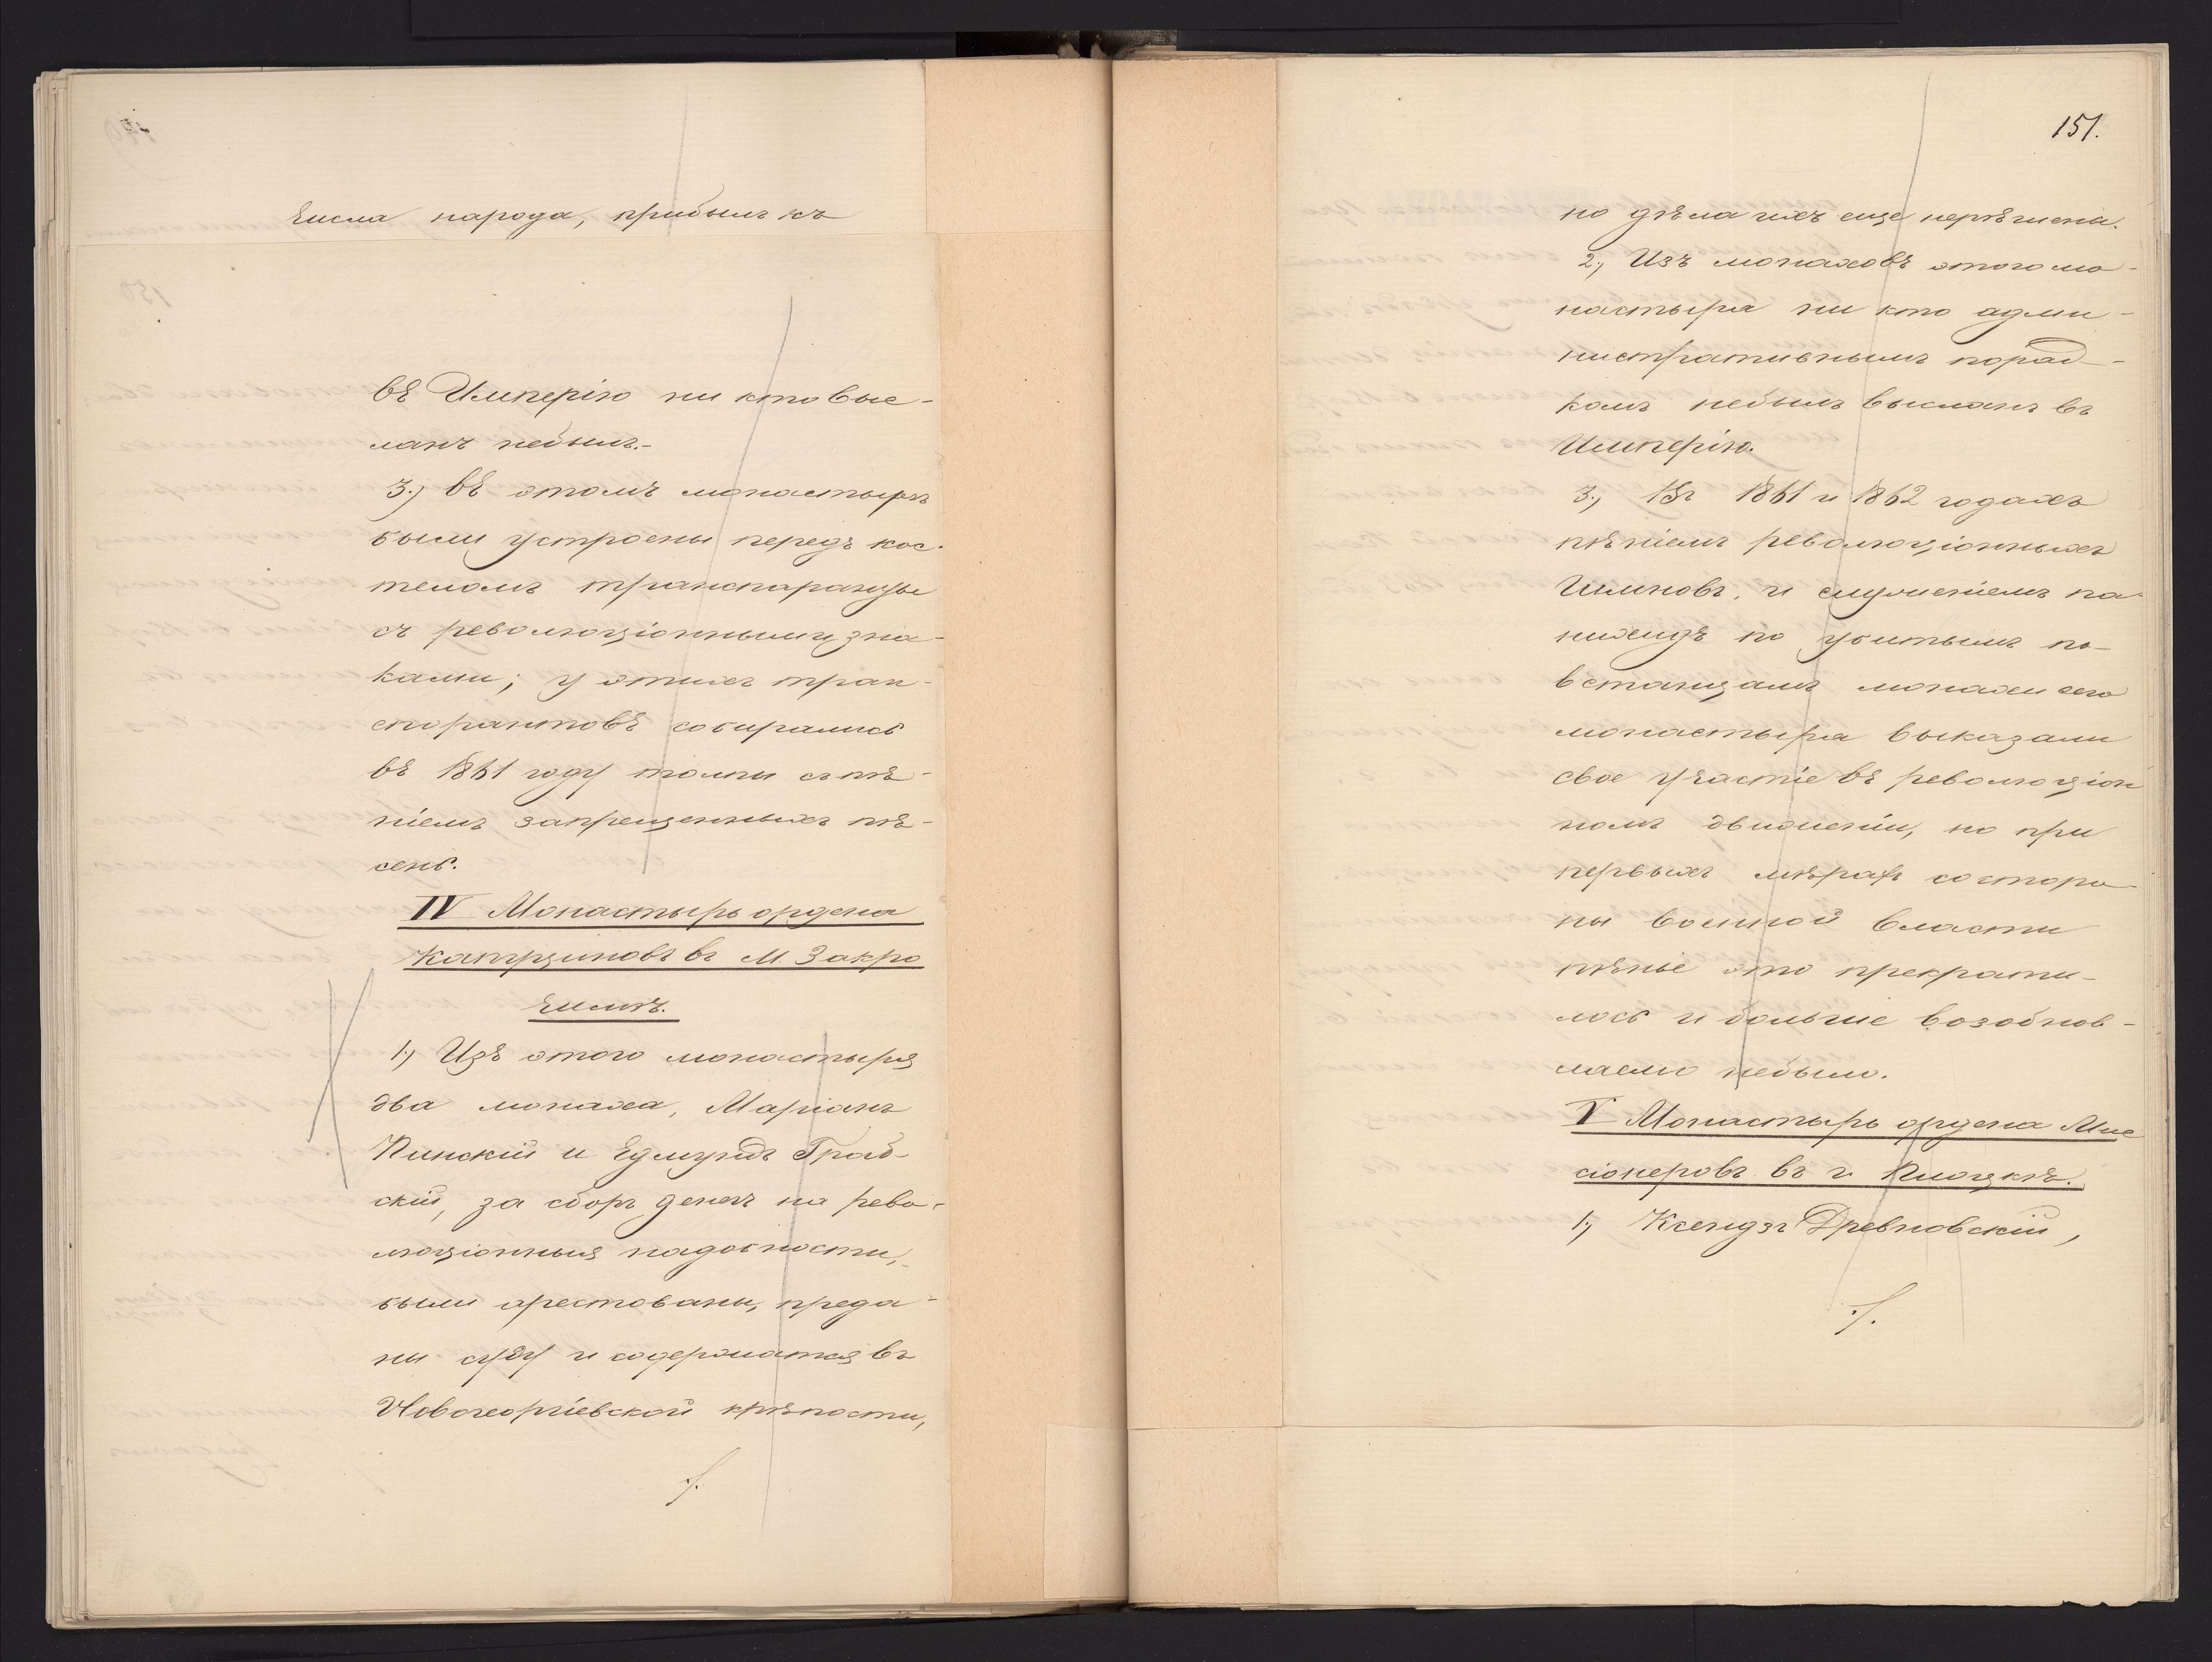 числа народа, прибылъ къ
въ Имперію ни кто выс-
ланъ небылъ.-
3.) въ этомъ монастырѣ
были устроены передъ кос-
теломъ транспаранцы
съ революціонными зна-
ками; у этихъ тран-
спорантовъ собирались
въ 1861 году толпы съ пѣ-
ніемъ запрещенныхъ пѣ-
сень.
IV Монастырь ордена
Капуциновъ въ М. Закро
чимѣ.
1.) Изъ этого монастыря
два монаха, Маріанъ
Пинскій и Едмундъ Граб-
скій, за сборъ денегъ на рево-
люціонныя надобности,
были арестованы, преда-
ны суду и содержатся въ
Новогеоргіевской крѣпости,
/.
151.
но дѣла ихъ еще нерѣшены.
2.) Изъ монаховъ этого мо-
настыря ни кто адми-
нистративнымъ поряд-
комъ небылъ высланъ въ
Имперію.
3.) Въ 1861 и 1862 годахъ
пѣніемъ революціонныхъ
Гимновъ, и служеніемъ па-
нихидъ по убитымъ по-
встанцамъ монахи сего
монастыря выказали
свое участіе въ революціон
номъ движеніи, но при
первыхъ мѣрахъ со сторо-
ны военной власти
пѣніе это прекрати-
лось и больше возобнов-
ляемо небыло.
V Монастырь ордена Мис
сіонеровъ въ г. Плоцкѣ.
1.) Ксендзъ Древновскій,
/.